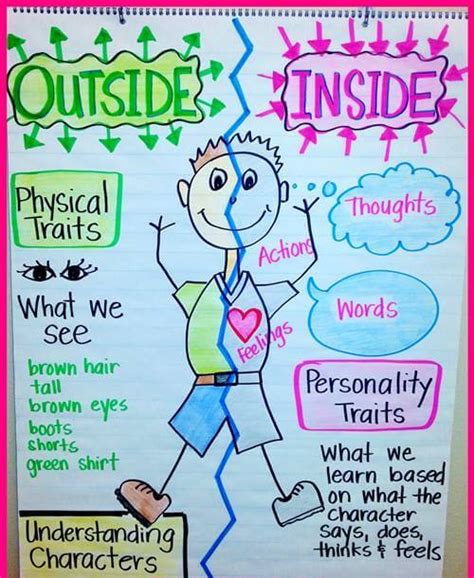 OUTSIDE
INSIDE
Physical
Traits
What we
see
brown hair
tall
brown eyes
boots
shorts
green shirt
Understanding
Characters
Thoughts
Actions
Words
Feelings
Personality
Traits
What we
learn based
on what the
character
says, does,
thinks & feels